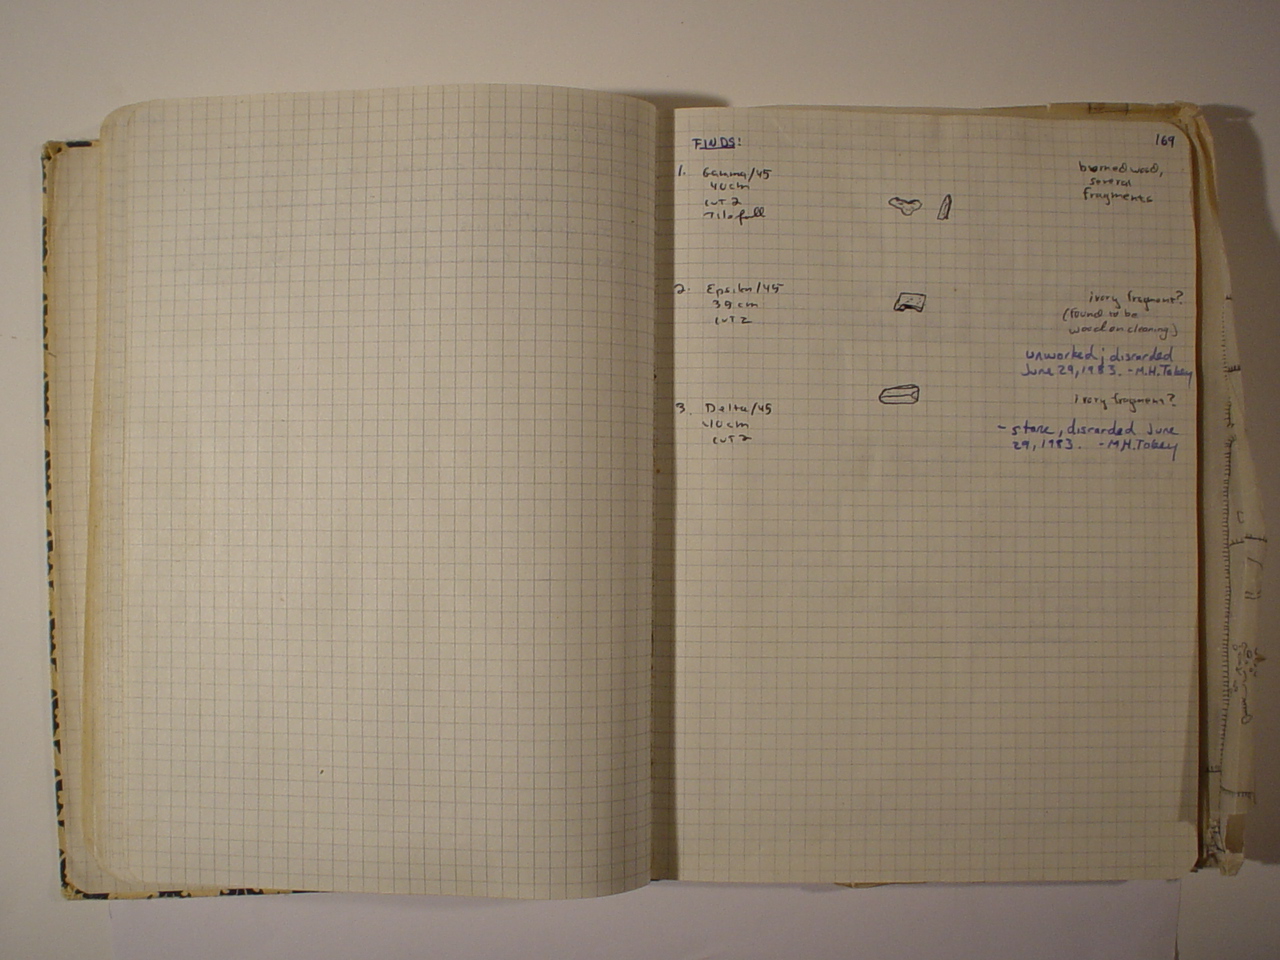 FINDS:
169
1. Gamma/45
40cm
CUT 2
Tilefall
burned wood,
several
fragments
2. Epsilon/45
39 cm
CUT 2
ivory fragment?
(found to be
wood on cleaning)
unworked; discarded
June 29, 1983. - M.H.
3. Delta/45
40cm
CUT 2
ivory fragment?
- stone, discarded June
29, 1983. - M.H.